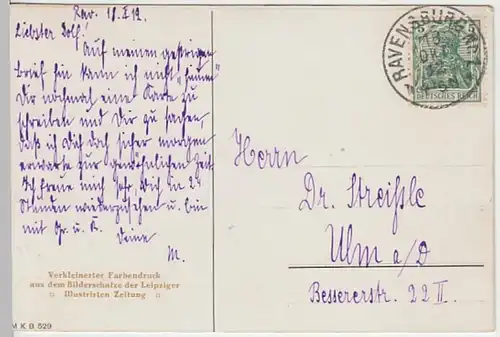 Rav. 18.X.12.
Liebster Dolf!
Auf meinen gestrigen
Brief hin kann ich nicht "hinne"
Dir nochmal eine Karte zu
schreiben und Dir zu sagen,
daß ich Dich doch sicher morgen
erwarte zur gewöhnlichen Zeit.
Ich freue mich sehr, Dich in 24
Stunden wiederzusehen u. bin
mit Gr. u. K.
Deine
M.
Verkleinerter Farbendruck
aus dem Bilderschatze der Leipziger
Illustrirten Zeitung
M K B 529
RAVENSBURG
DEUTSCHES REICH
Herrn
Dr. Streißle
Ulm a/D
Bessererstr. 22 II.